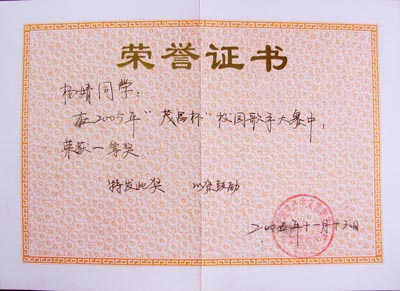 荣誉证书
杨婧同学：
在2005年“茂昌杯”校园歌手大赛中，
荣获一等奖．
特发此奖 以资鼓励
二〇〇五年十一月十六日